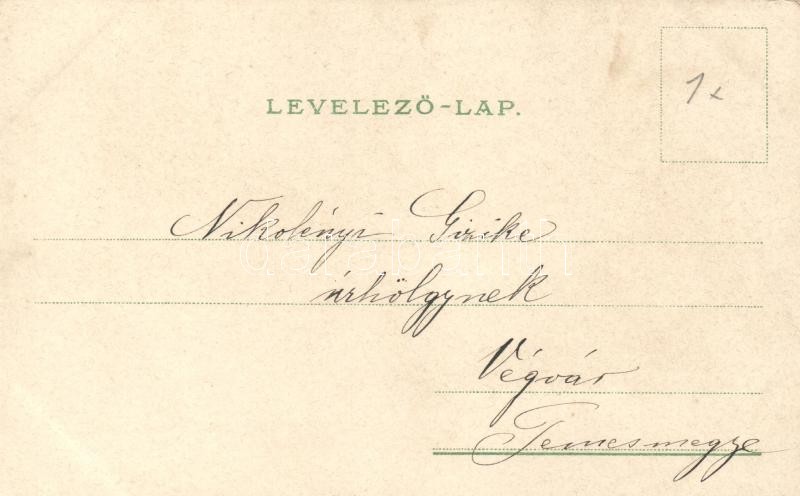 1x
LEVELEZŐ-LAP.
Nikolényi Gizike
úrhölgynek
Végvár
Temesmegye